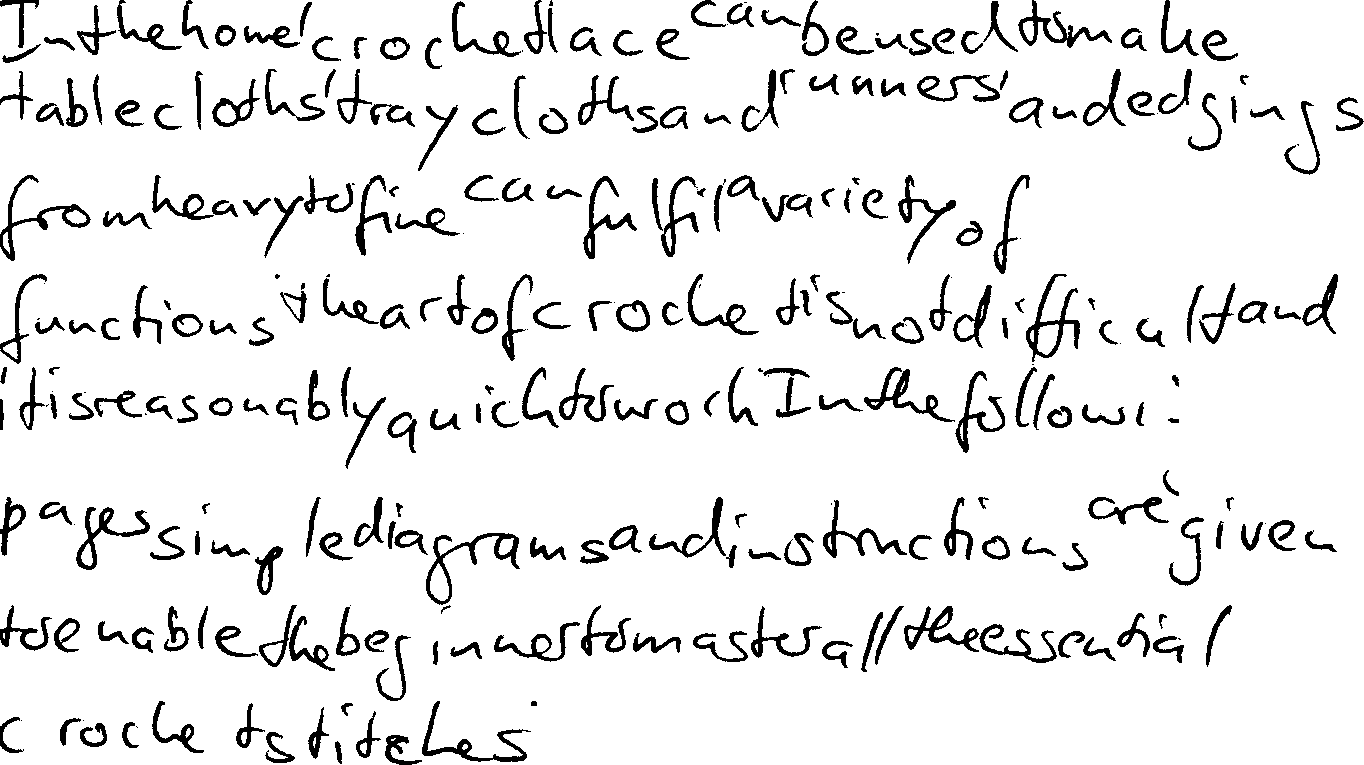 In the home' crochet lace can be used to make
tablecloths' tray cloths and runners' and edgings
from heavy to fine can fulfil a variety of
functions the art of crochet is not difficult and
it is reasonably quick to work In the followi:
pages simple diagrams and instructions are given
to enable the beginner to master all the essential
crochet stitches